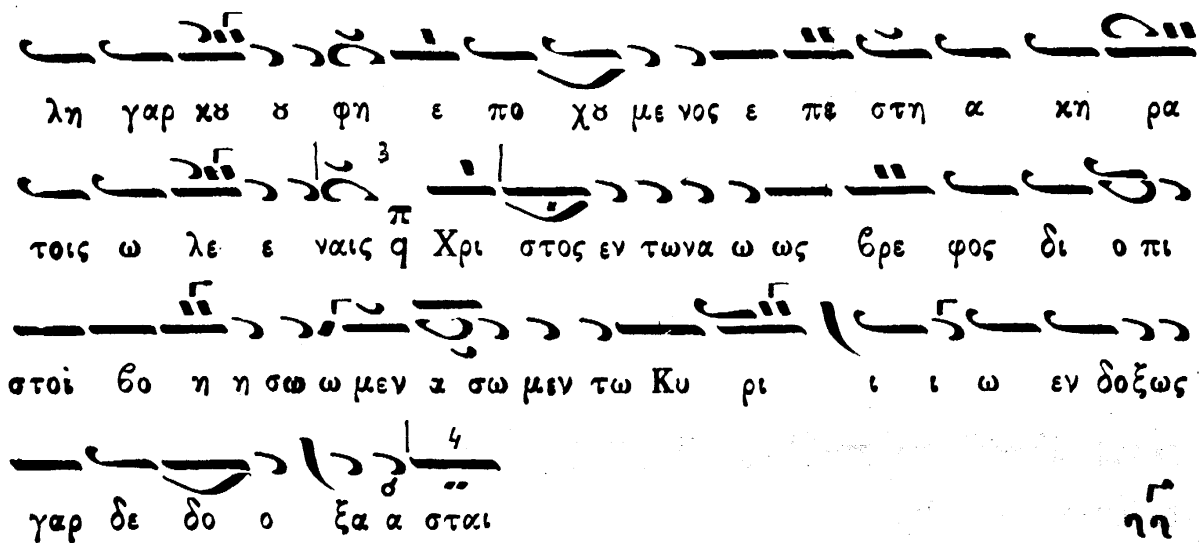 λη γαρ κȣ ȣ φη ε πο χȣ με νος ε πε στη α κη ρα
3
τοις ω λε ε ναις π q Χρι στος εν τω να ω ως βρε φος δι ο πι
στοὶ βο η η σω ω μεν α σω μεν τω Κυ ρι ι ι ω εν δο ξως
4
γαρ δε δο ο ξα α σται